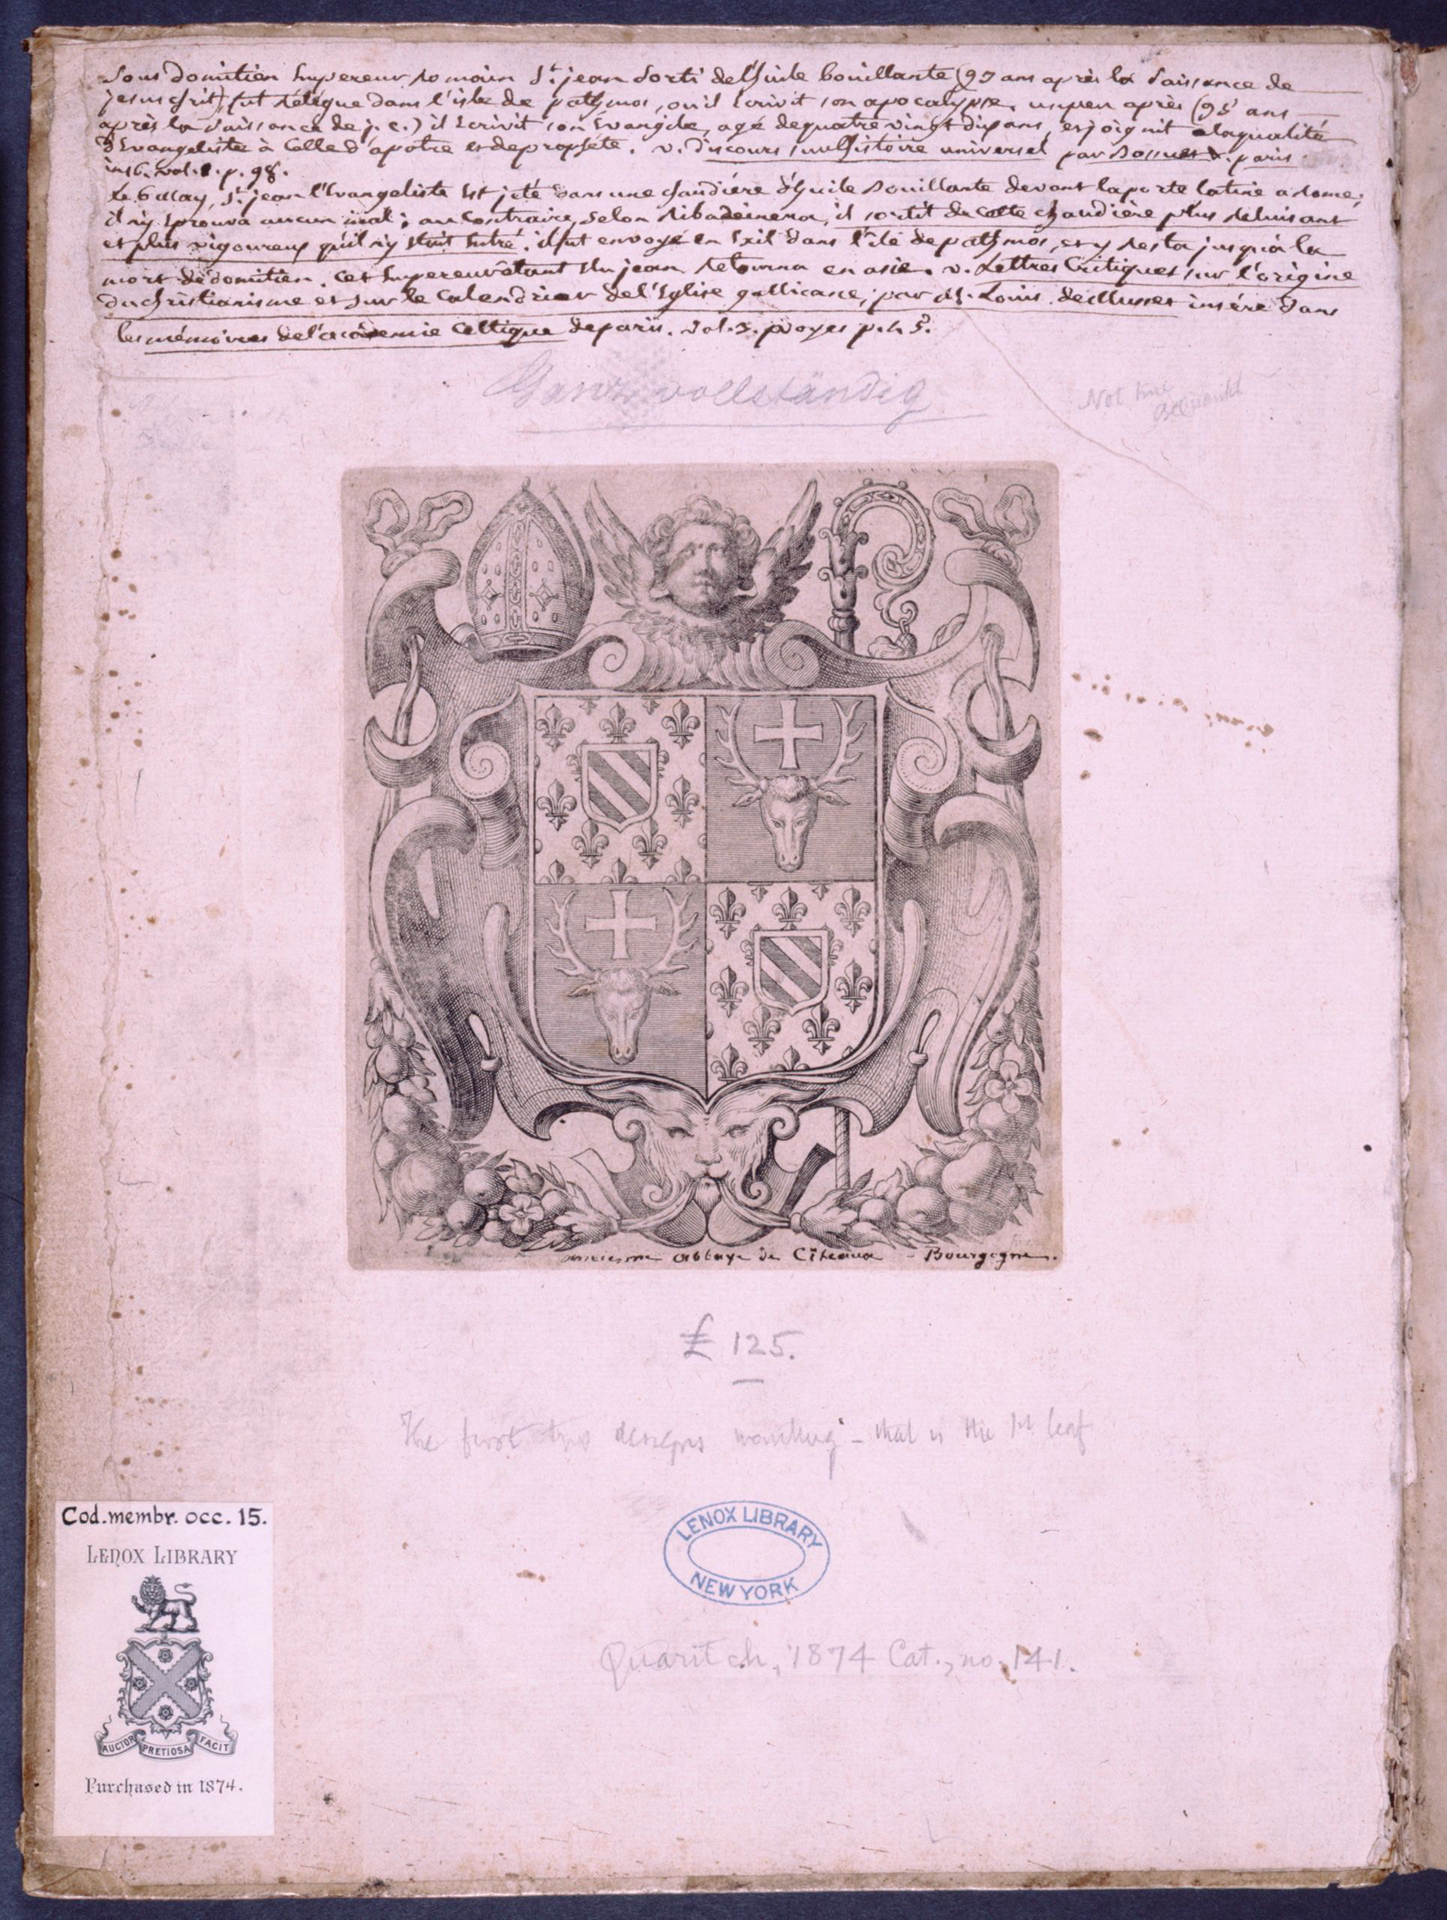 Sous domitien Empereur romain St. jean Sorti de l'huile bouillante (95 ans après la Naissance de
jesus chrit) fut rélégué dans l'isle de pathmos, ou il Ecrivit son apocalypse. un peu après (95 ans
après la Naissance de j. c.) il Ecrivit son Evangile, agé de quatre vingt dix ans, et joignit a la qualité
d'Evangeliste à Celle d'apotre et de prophéte. v. discours sur l'histoire universel par Bossuet. paris.
in 6. vol. 1. p. 98.
Le 6 May, St. jean l'Evangeliste Est jeté dans une chaudiére d'huile Bouillante devant la porte latine a Rome;
il n'y Eprouva aucun mal; au Contraire, selon Ribadeinera, il sortit de cette chaudière plus reluisant
et plus vigoureux qu'il n'y etoit Entré. il fut envoyé en Exil dans l'île de pathmos, et y resta jusqu'à la
mort de domitien. Cet Empereur étant Mort jean retourna en asie. v. Lettres Critiques sur l'origine
du christianisme et sur le Calendrier de l'Eglise gallicane, par M. Louis de Musset inséré dans
les mémoires de l'académie Celtique de paris. vol. 3. voyes p.
Ganz vollständig
Not
ancienne Abbaye de Cîteaux - Bourgogne.
£ 125.
The first two designs wanting - that is the 1st leaf
Cod. membr. occ. 15.
LENOX LIBRARY
AUCTOR PRETIOSA FACIT
Purchased in 1874.
LENOX LIBRARY
NEW YORK
Quaritch, 1874 Cat., no. 141.